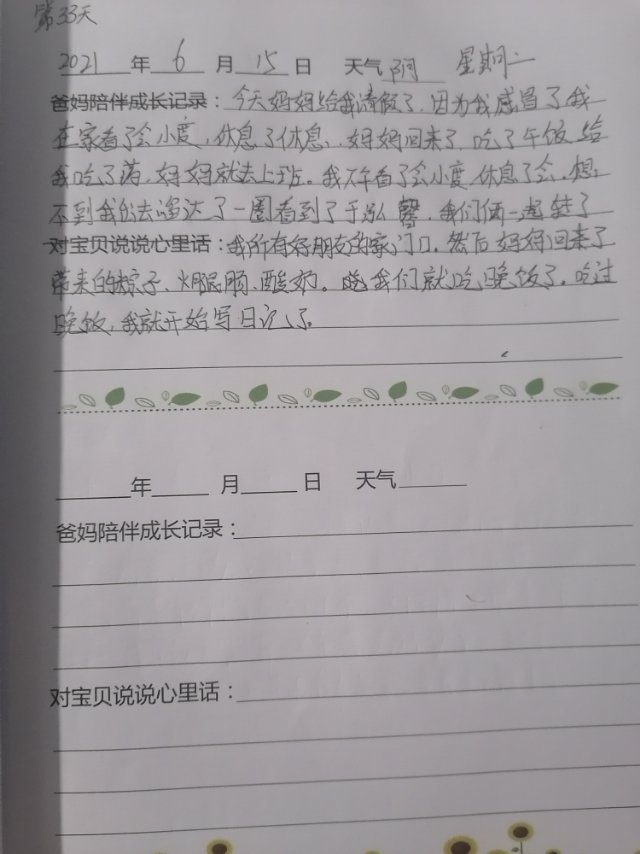 第33天
2021年6月15日 天气阴 星期二
爸妈陪伴成长记录：今天妈妈给我请假了，因为我感冒了我
在家看了会小度，休息了休息，妈妈回来了，吃了午饭给
我吃了药，妈妈就去上班。我下午看了会小度，休息了会，想
不到我们去溜达了一圈看到了于泓馨，我们俩一起转了
对宝贝说说心里话：我所有好朋友的家门口，然后妈妈回来了
带来的粽子、火腿肠、酸奶。我们就吃晚饭了。吃过
晚饭，我就开始写日记了。
年 月 日 天气
爸妈陪伴成长记录：
对宝贝说说心里话：